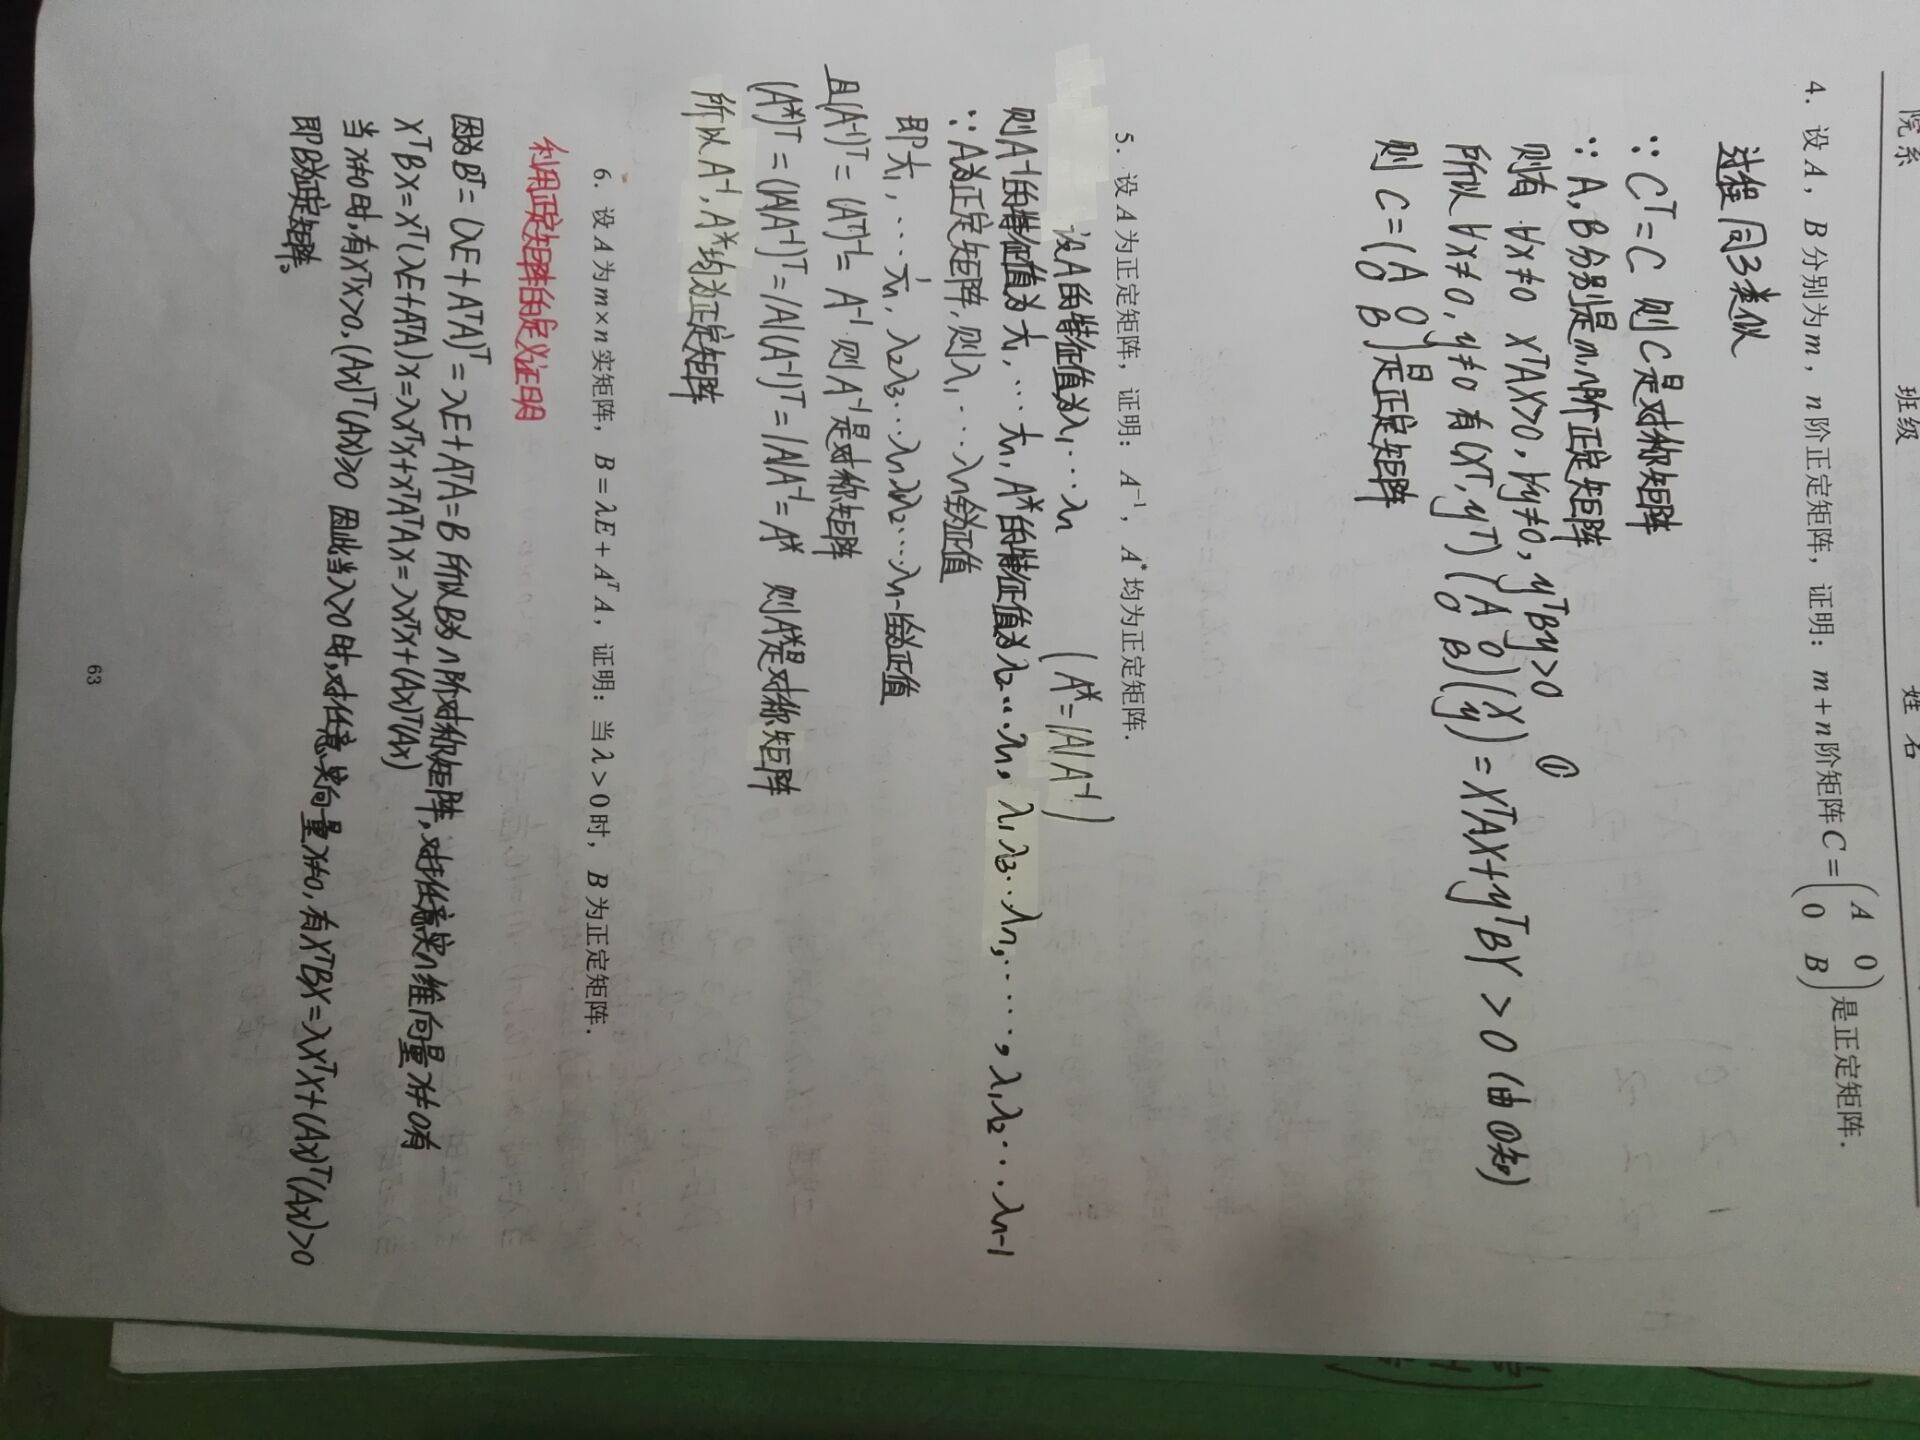 院系 班级 姓名
4. 设 A，B 分别为 m，n 阶正定矩阵，证明：m+n 阶矩阵 C = (A 0; 0 B) 是正定矩阵．
过程同3类似
∵ Cᵀ=C 则C是对称矩阵
∵ A,B分别是m,n阶正定矩阵
则有 ∀x≠0 xᵀAx>0, ∀y≠0, yᵀBy>0 ①
所以∀x≠0, y≠0 有(xᵀ, yᵀ)(A 0; 0 B)(x; y) = xᵀAx+yᵀBy > 0 (由①知)
则 C=(A 0; 0 B)是正定矩阵
5. 设 A 为正定矩阵，证明：A⁻¹，A* 均为正定矩阵．
设A的特征值为λ₁…λn (A*=|A|A⁻¹)
则A⁻¹的特征值为 1/λ₁,…1/λn, A*的特征值为λ₂…λn, λ₁λ₃…λn,……, λ₁λ₂…λn-1
∵A为正定矩阵, 则λ₁…λn全为正值
即1/λ₁,…1/λn, λ₂λ₃…λn λ₁λ₂…λn-1全为正值
且(A⁻¹)ᵀ=(Aᵀ)⁻¹=A⁻¹ 则A⁻¹是对称矩阵
(A*)ᵀ=(|A|A⁻¹)ᵀ=|A|(A⁻¹)ᵀ=|A|A⁻¹=A* 则A*是对称矩阵
所以A⁻¹, A*均为正定矩阵
6. 设 A 为 m×n 实矩阵，B=λE+AᵀA，证明：当 λ>0 时，B 为正定矩阵．
利用正定矩阵的定义证明
因为Bᵀ=(λE+AᵀA)ᵀ=λE+AᵀA=B 所以B为n阶对称矩阵, 对任意实n维向量x≠0有
xᵀBx=xᵀ(λE+AᵀA)x=λxᵀx+xᵀAᵀAx=λxᵀx+(Ax)ᵀ(Ax)
当x≠0时, 有xᵀx>0, (Ax)ᵀ(Ax)≥0 因此当λ>0时, 对任意实向量x≠0, 有xᵀBx=λxᵀx+(Ax)ᵀ(Ax)>0
即B为正定矩阵。
63